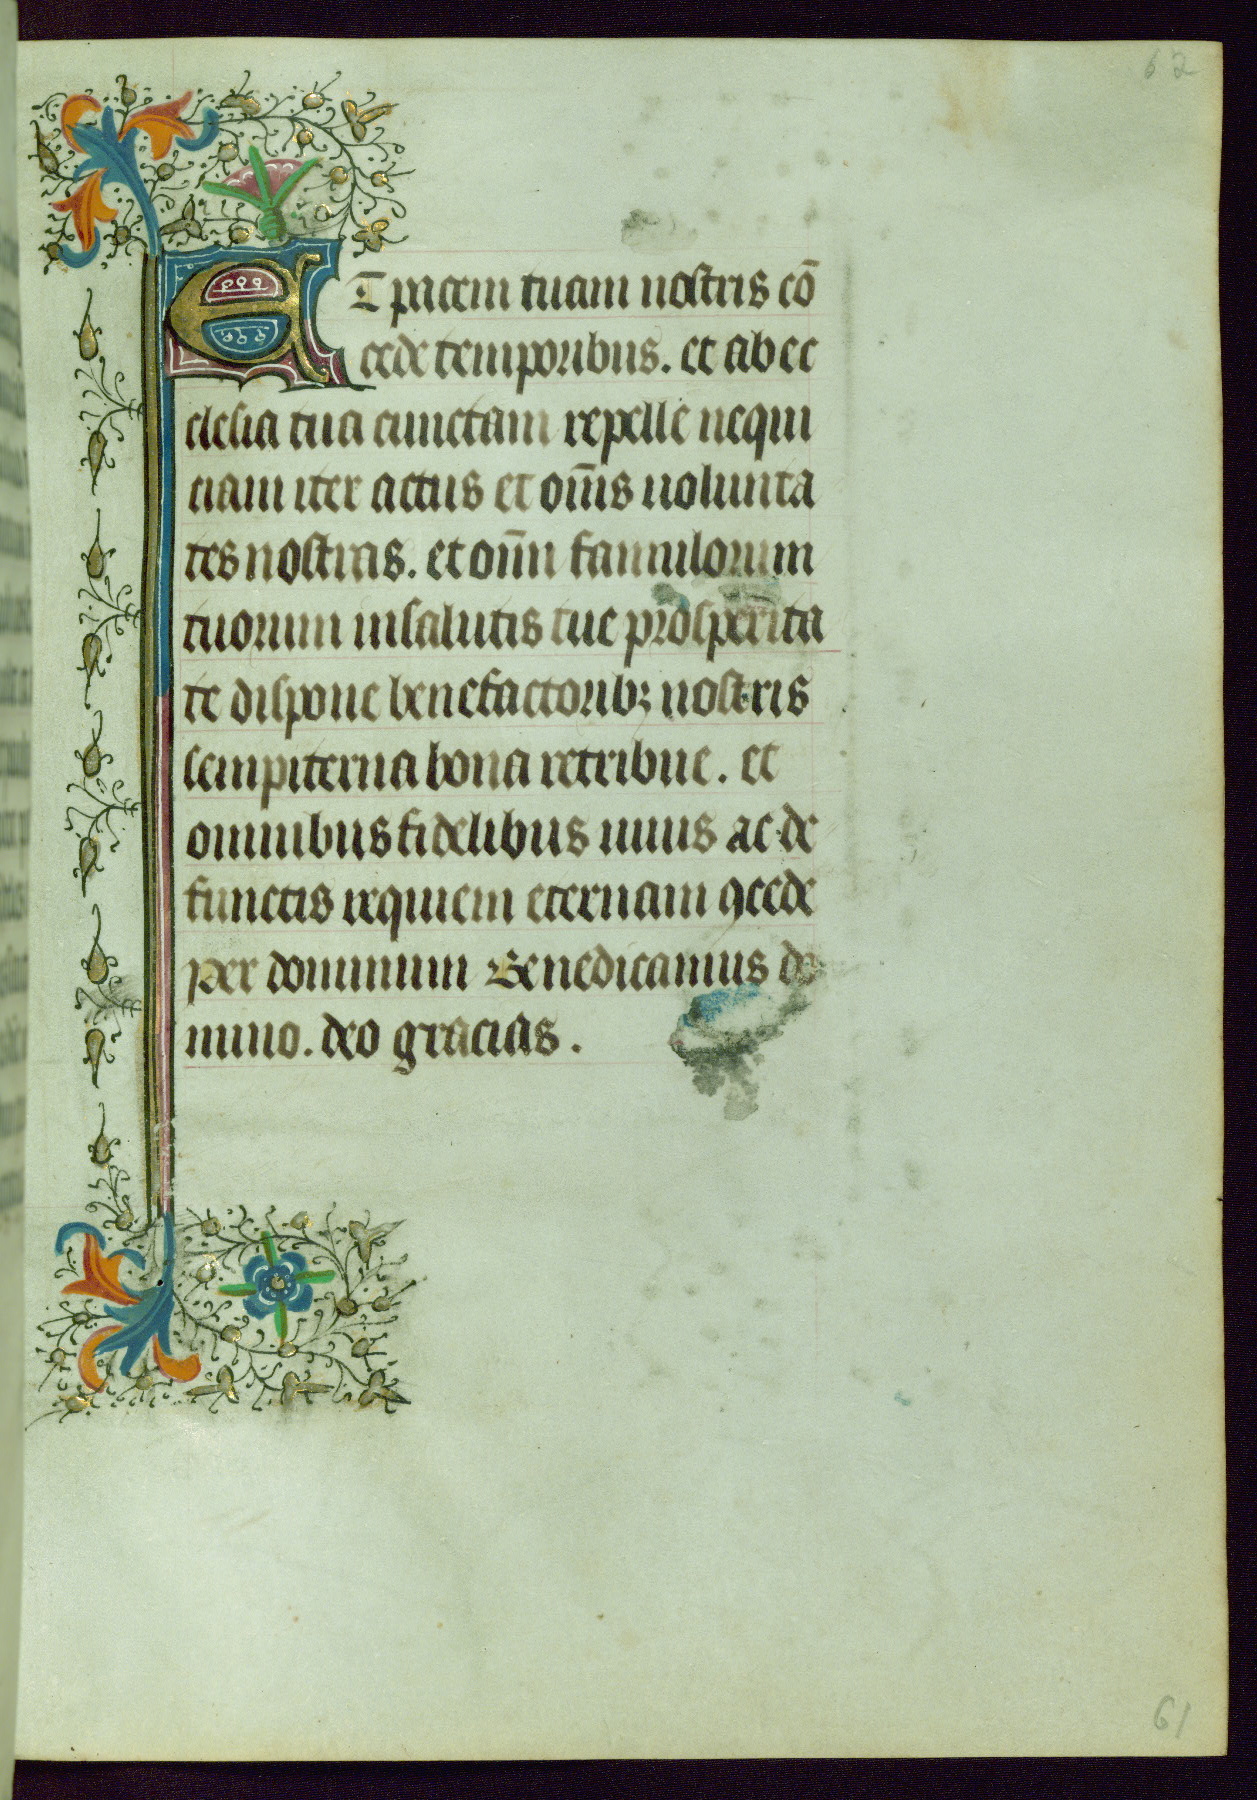 62
ET pacem tuam nostris cō
cede temporibus. et ab ec
clesia tua cunctam repelle nequi
ciam iter actus et om̄s uolunta
tes nostras. et om̄i famulorum
tuorum in salutis tue prosperita
te dispone benefactoribꝫ nostris
sempiterna bona retribue. et
omnibus fidelibus uiuis ac de
functis requiem eternam ꝯcede
Per dominum Benedicamus do
mino. deo gracias.
61